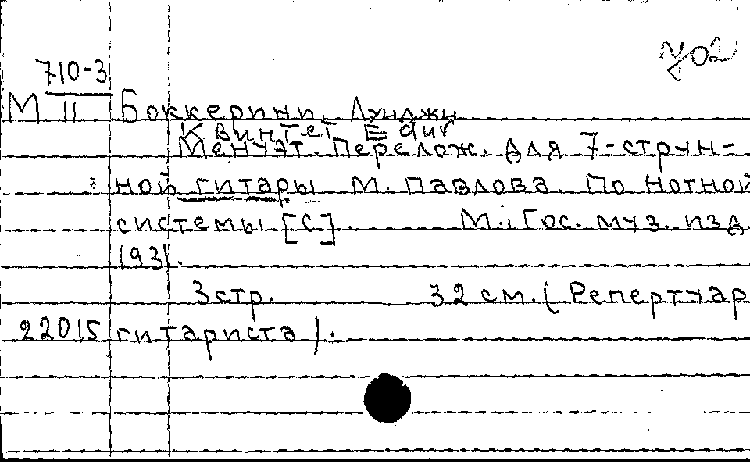 702
710-3
М II Боккерини, Луиджи
Квинтет E dur
Менуэт. Перелож. для 7-струн-
ной гитары М. Павлова. По нотной
системы [С] М., Гос. муз. изд.
1931.
3 стр. 32 см. (Репертуар
22015 гитариста).